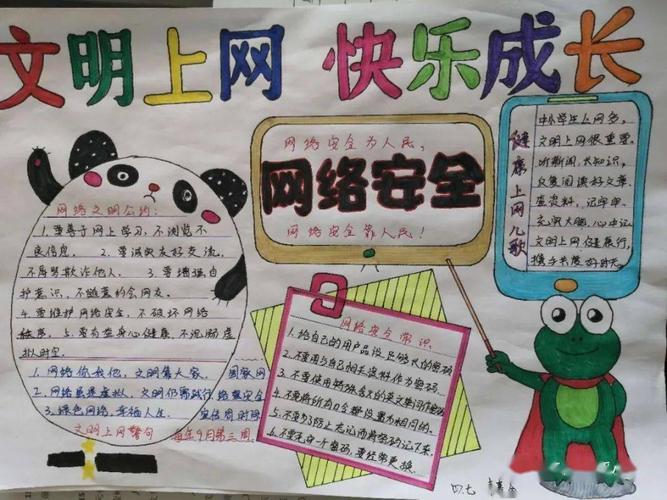 文明上网 快乐成长
网络文明公约:
1.要善于网上学习,不浏览不
良信息。2.要诚实友好交流,
不辱骂欺诈他人。3.要增强自
护意识,不随意约会网友。
4.要维护网络安全,不破坏网络
秩序。5.要有益身心健康,不沉溺虚
拟时空。
1.网络你我他,文明靠大家。
2.网络虽是虚拟,文明仍需践行
3.绿色网络,幸福人生。
国家网
络安全
宣传周时间
文明上网警句
每年9月第三周
网络安全为人民,
网络安全
网络安全靠人民!
网络安全常识
1.给自己的用户名设足够长的密码
2.不要用与自己相关资料作为密码
3.不要使用特殊含义的英文单词作密码
4.不要将所有口令都设置为相同的。
5.不要为了防止忘记而将密码记下来。
6.不要死守一个密码,要经常更换。
健康上网儿歌
中小学生上网多,
文明上网很重要。
听新闻,长知识,
反复阅读好文章。
查资料,记牢牢,
充实大脑,心中记。
文明上网健康行,
携手共度好时光。
四.七